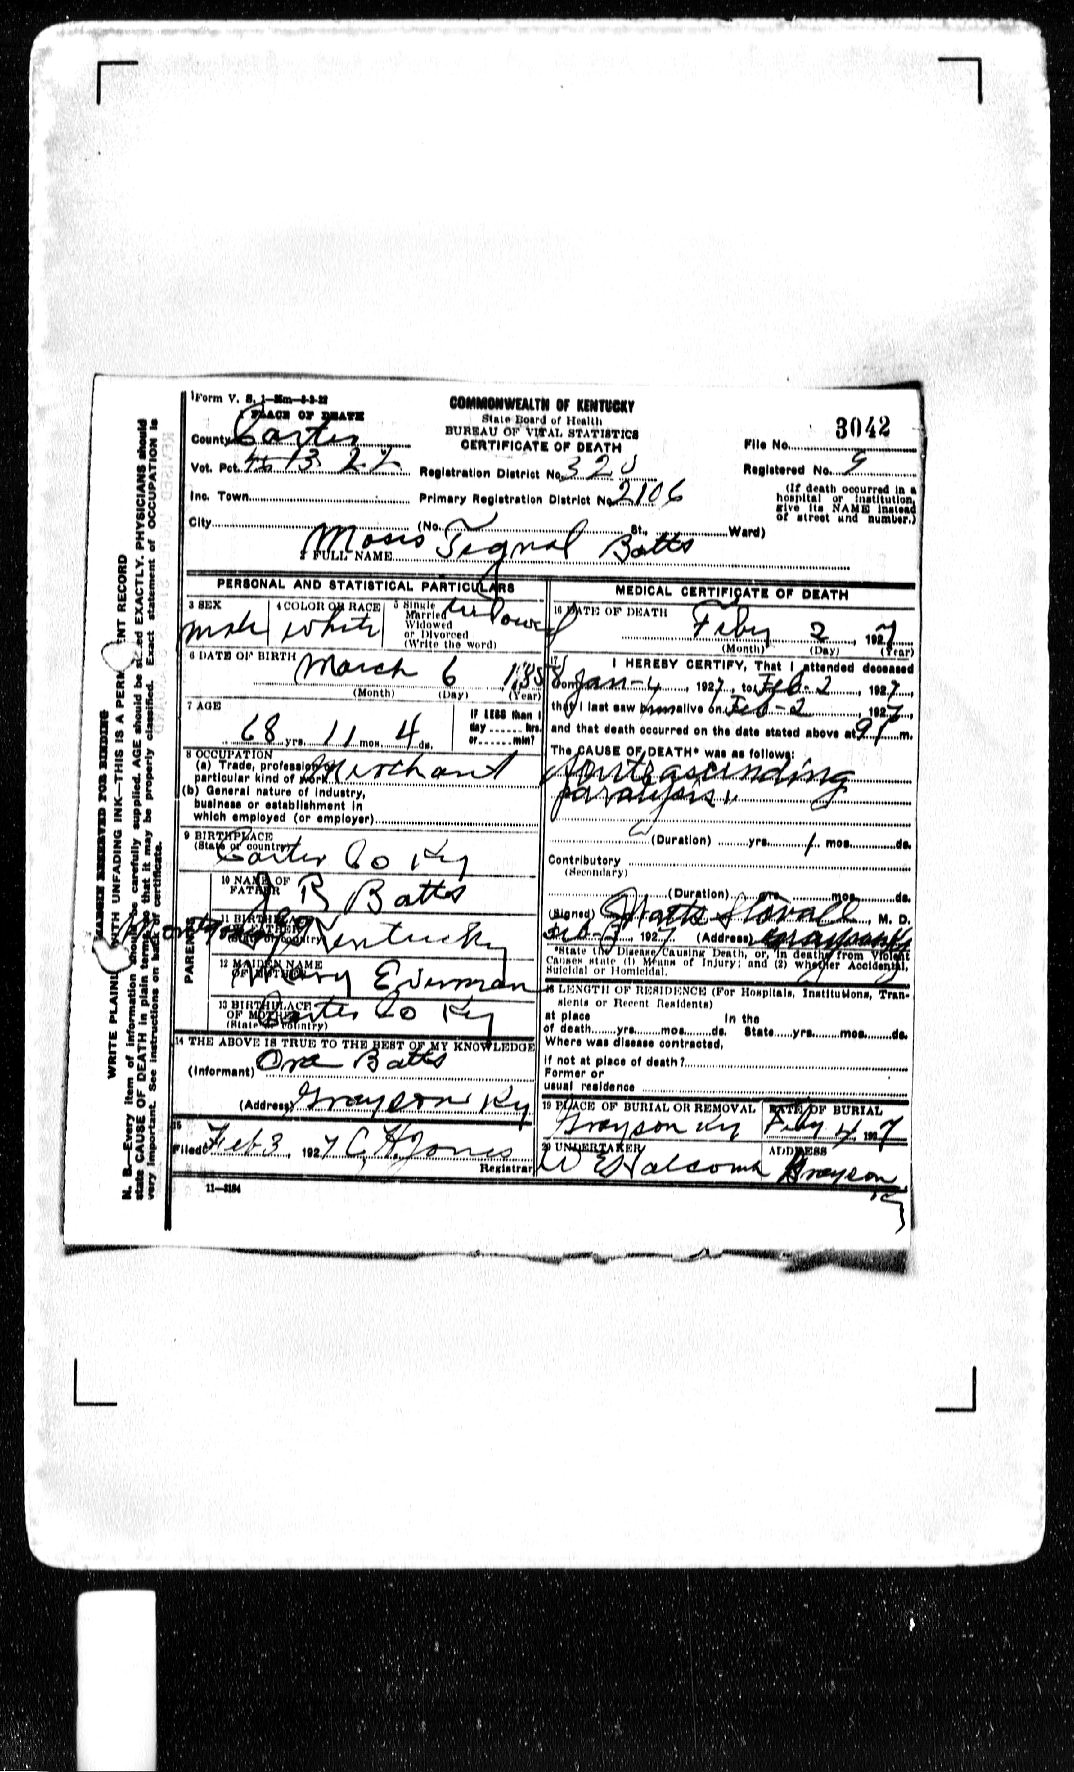 Form V. S. 1-
1 PLACE OF DEATH
COMMONWEALTH OF KENTUCKY
State Board of Health
BUREAU OF VITAL STATISTICS
CERTIFICATE OF DEATH
3042
County Carter
File No.
Vot. Pct. 13 22
Registration District No. 320
Registered No. 9
Inc. Town
Primary Registration District No. 2106
(If death occurred in a hospital or institution, give its NAME instead of street and number.)
City (No. St. Ward)
2 FULL NAME Moses Tignal Batts
PERSONAL AND STATISTICAL PARTICULARS
3 SEX male
4 COLOR OR RACE White
5 Single Married Widowed or Divorced (Write the word) Widowed
6 DATE OF BIRTH March 6 1858
(Month) (Day) (Year)
7 AGE
68 yrs. 11 mos. 4 ds.
IF LESS than 1 day hrs. or min?
8 OCCUPATION
(a) Trade, profession or particular kind of work Merchant
(b) General nature of industry, business or establishment in which employed (or employer)
9 BIRTHPLACE
(State or country) Carter Co Ky
PARENTS
10 NAME OF FATHER J R Batts
11 BIRTHPLACE OF FATHER (State or country) Kentucky
12 MAIDEN NAME OF MOTHER Mary E
13 BIRTHPLACE OF MOTHER (State or country) Carter Co Ky
14 THE ABOVE IS TRUE TO THE BEST OF MY KNOWLEDGE
(Informant) Ora Batts
(Address) Grayson Ky
15
Filed Feb 3, 1927 C. H. Jones
Registrar
11—3184
MEDICAL CERTIFICATE OF DEATH
16 DATE OF DEATH
Feby 2, 1927
(Month) (Day) (Year)
17 I HEREBY CERTIFY, That I attended deceased
from Jan-4, 1927, to Feb-2, 1927,
that I last saw him alive on Feb-2, 1927,
and that death occurred on the date stated above at 9 m.
The CAUSE OF DEATH* was as follows:
paralysis
(Duration) yrs. 1 mos. ds.
Contributory
(Secondary)
(Duration) yrs. mos. ds.
(Signed) Watts Stovall M. D.
Feb-3, 1927 (Address) Grayson Ky
*State the Disease Causing Death, or, in deaths from Violent
Causes state (1) Means of Injury; and (2) whether Accidental,
Suicidal or Homicidal.
18 LENGTH OF RESIDENCE (For Hospitals, Institutions, Transients or Recent Residents)
At place of death yrs. mos. ds. In the State yrs. mos. ds.
Where was disease contracted,
if not at place of death?
Former or usual residence
19 PLACE OF BURIAL OR REMOVAL Grayson Ky
DATE OF BURIAL Feby 4, 1927
20 UNDERTAKER W E Halcomb
ADDRESS Grayson Ky
MARGIN RESERVED FOR BINDING
WRITE PLAINLY WITH UNFADING INK—THIS IS A PERMANENT RECORD
N. B.—Every item of information should be carefully supplied. AGE should be stated EXACTLY. PHYSICIANS should
state CAUSE OF DEATH in plain terms, so that it may be properly classified. Exact statement of OCCUPATION is
very important. See instructions on back of certificate.